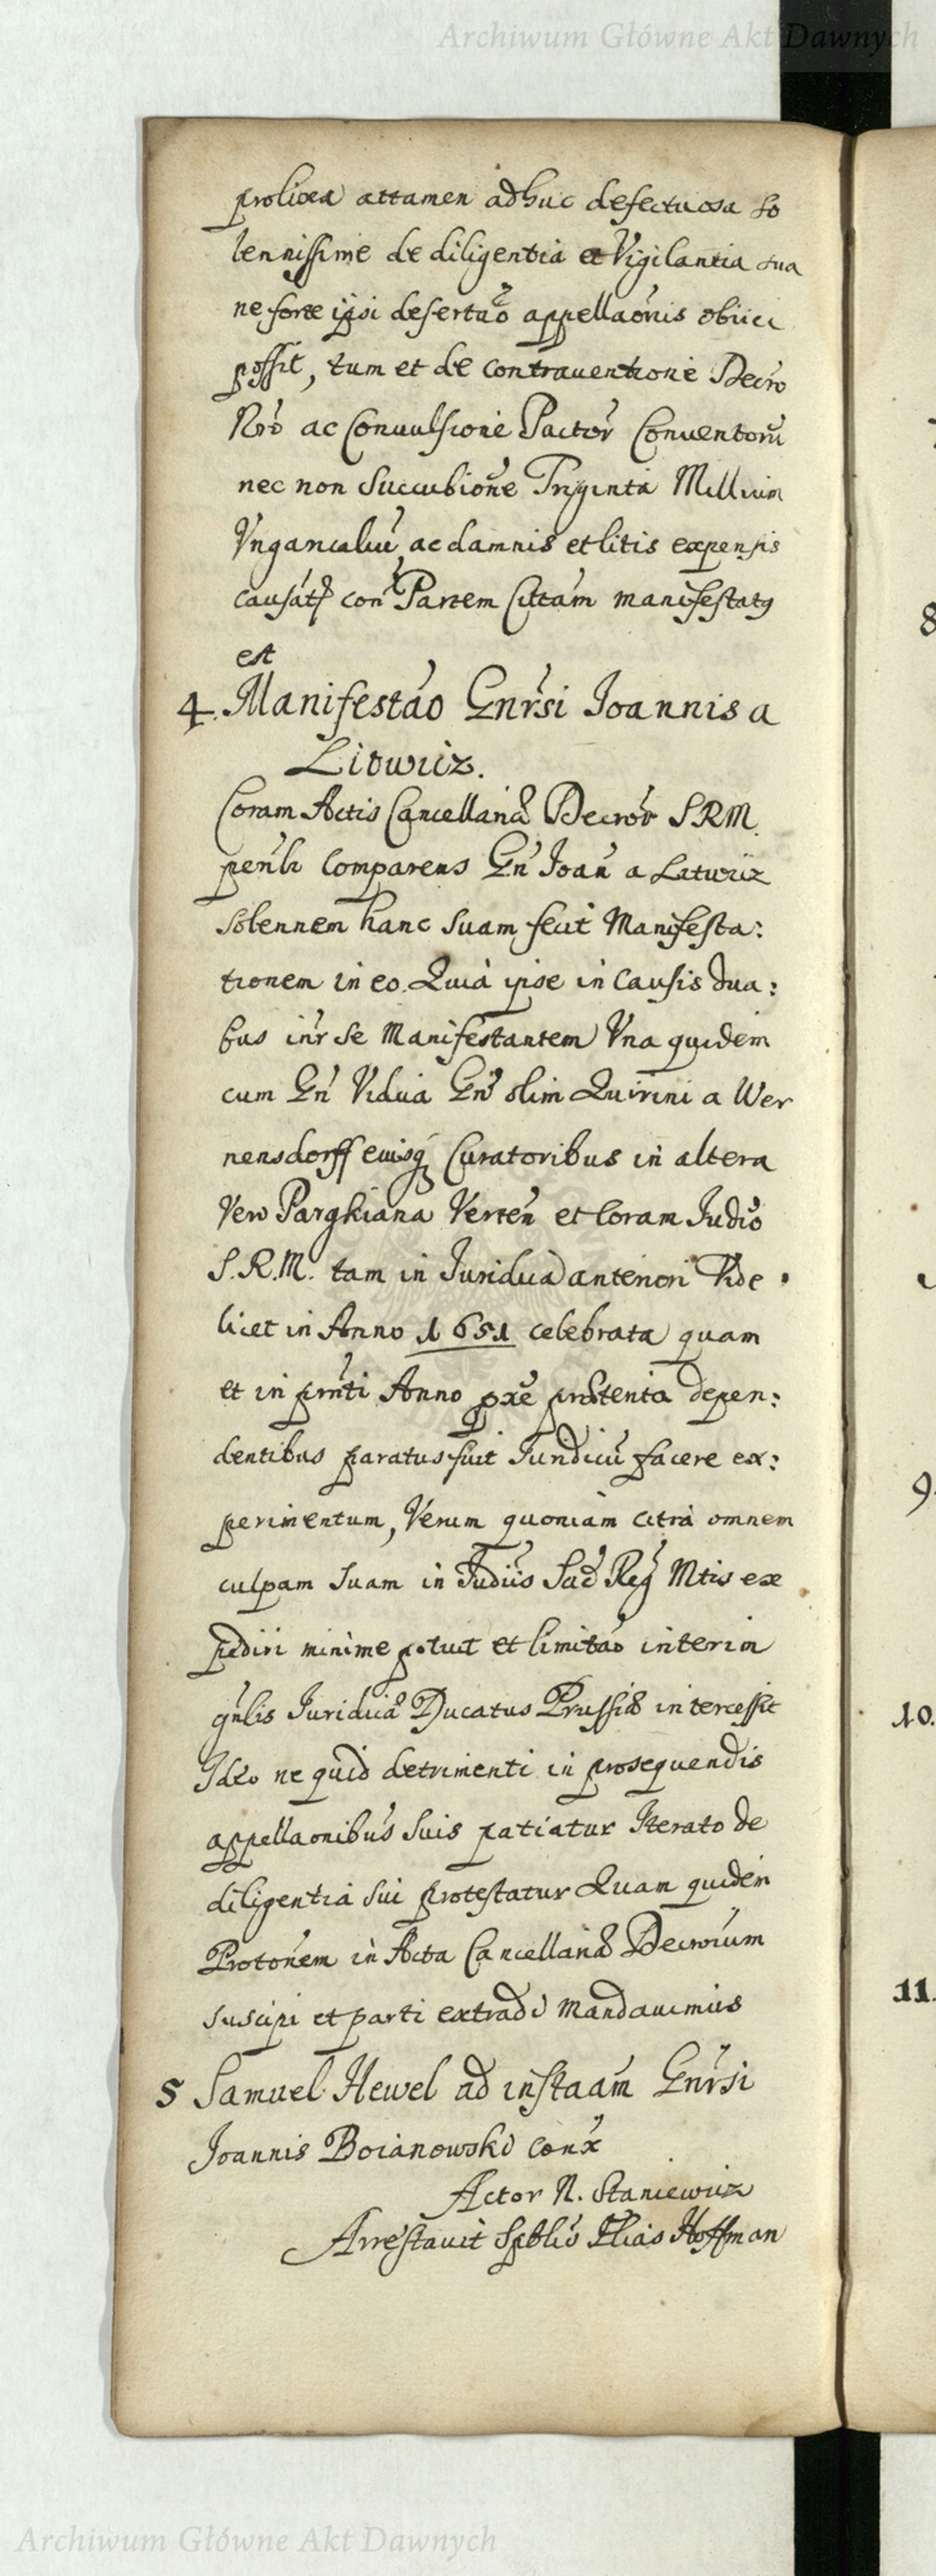 Archiwum Główne Akt Dawnych
prolixa attamen adhuc defectuosa so
lennissime de diligentia et Vigilantia sua
ne forte ipsi desertaõ appellaõnis obiici
possit, tum et de contrauentione Decro
Nro ac Conuulsione Pactor Conuentorū
nec non Succubione Triginta Millium
Vngaricaliū ac damnis et litis expensis
causatis con Partem Cittam manifestatq
est
4. Manifestaõ Gnrsi Joannis a
Litwiiz.
Coram Actis Cancellariæ Decror S.R.M.
penlr Comparens Gn Joan a Litwiiz
Solennem hanc Suam fecit Manifesta:
tionem in eo. Quia ipse in Causis dua:
bus intr Se Manifestantem Vna quidem
cum Gn Vidua Gn olim Quirini a Wer
nensdorff eiusq Curatoribus in altera
Vero Pargkiana Verten et Coram Judio
S.R.M. tam in Juridica anteriori Vide
licet in Anno 1651 celebrata quam
et in prnti Anno pxe prætenta depen:
dentibus paratus fuit Juridicū facere ex:
perimentum, Verum quoniam citra omnem
culpam Suam in Judiis Sac Reg Mtis ex
pediri minime potuit et limitaõ interim
gnlis Juridicæ Ducatus Prussiæ intercessit
Ideo ne quid detrimenti in prosequendis
appellaonibus Suis patiatur Iterato de
diligentia Sui protestatur Quam quidem
Protonem in Acta Cancellariæ Decroium
suscipi et parti extradi Mandauimus
5 Samuel Hewel ad instaam Gnrsi
Joannis Boianowski conx
Actor N. Staniewiiz
Arrestauit Spblis Elias Hoffman
8
9.
10.
11.
Archiwum Główne Akt Dawnych